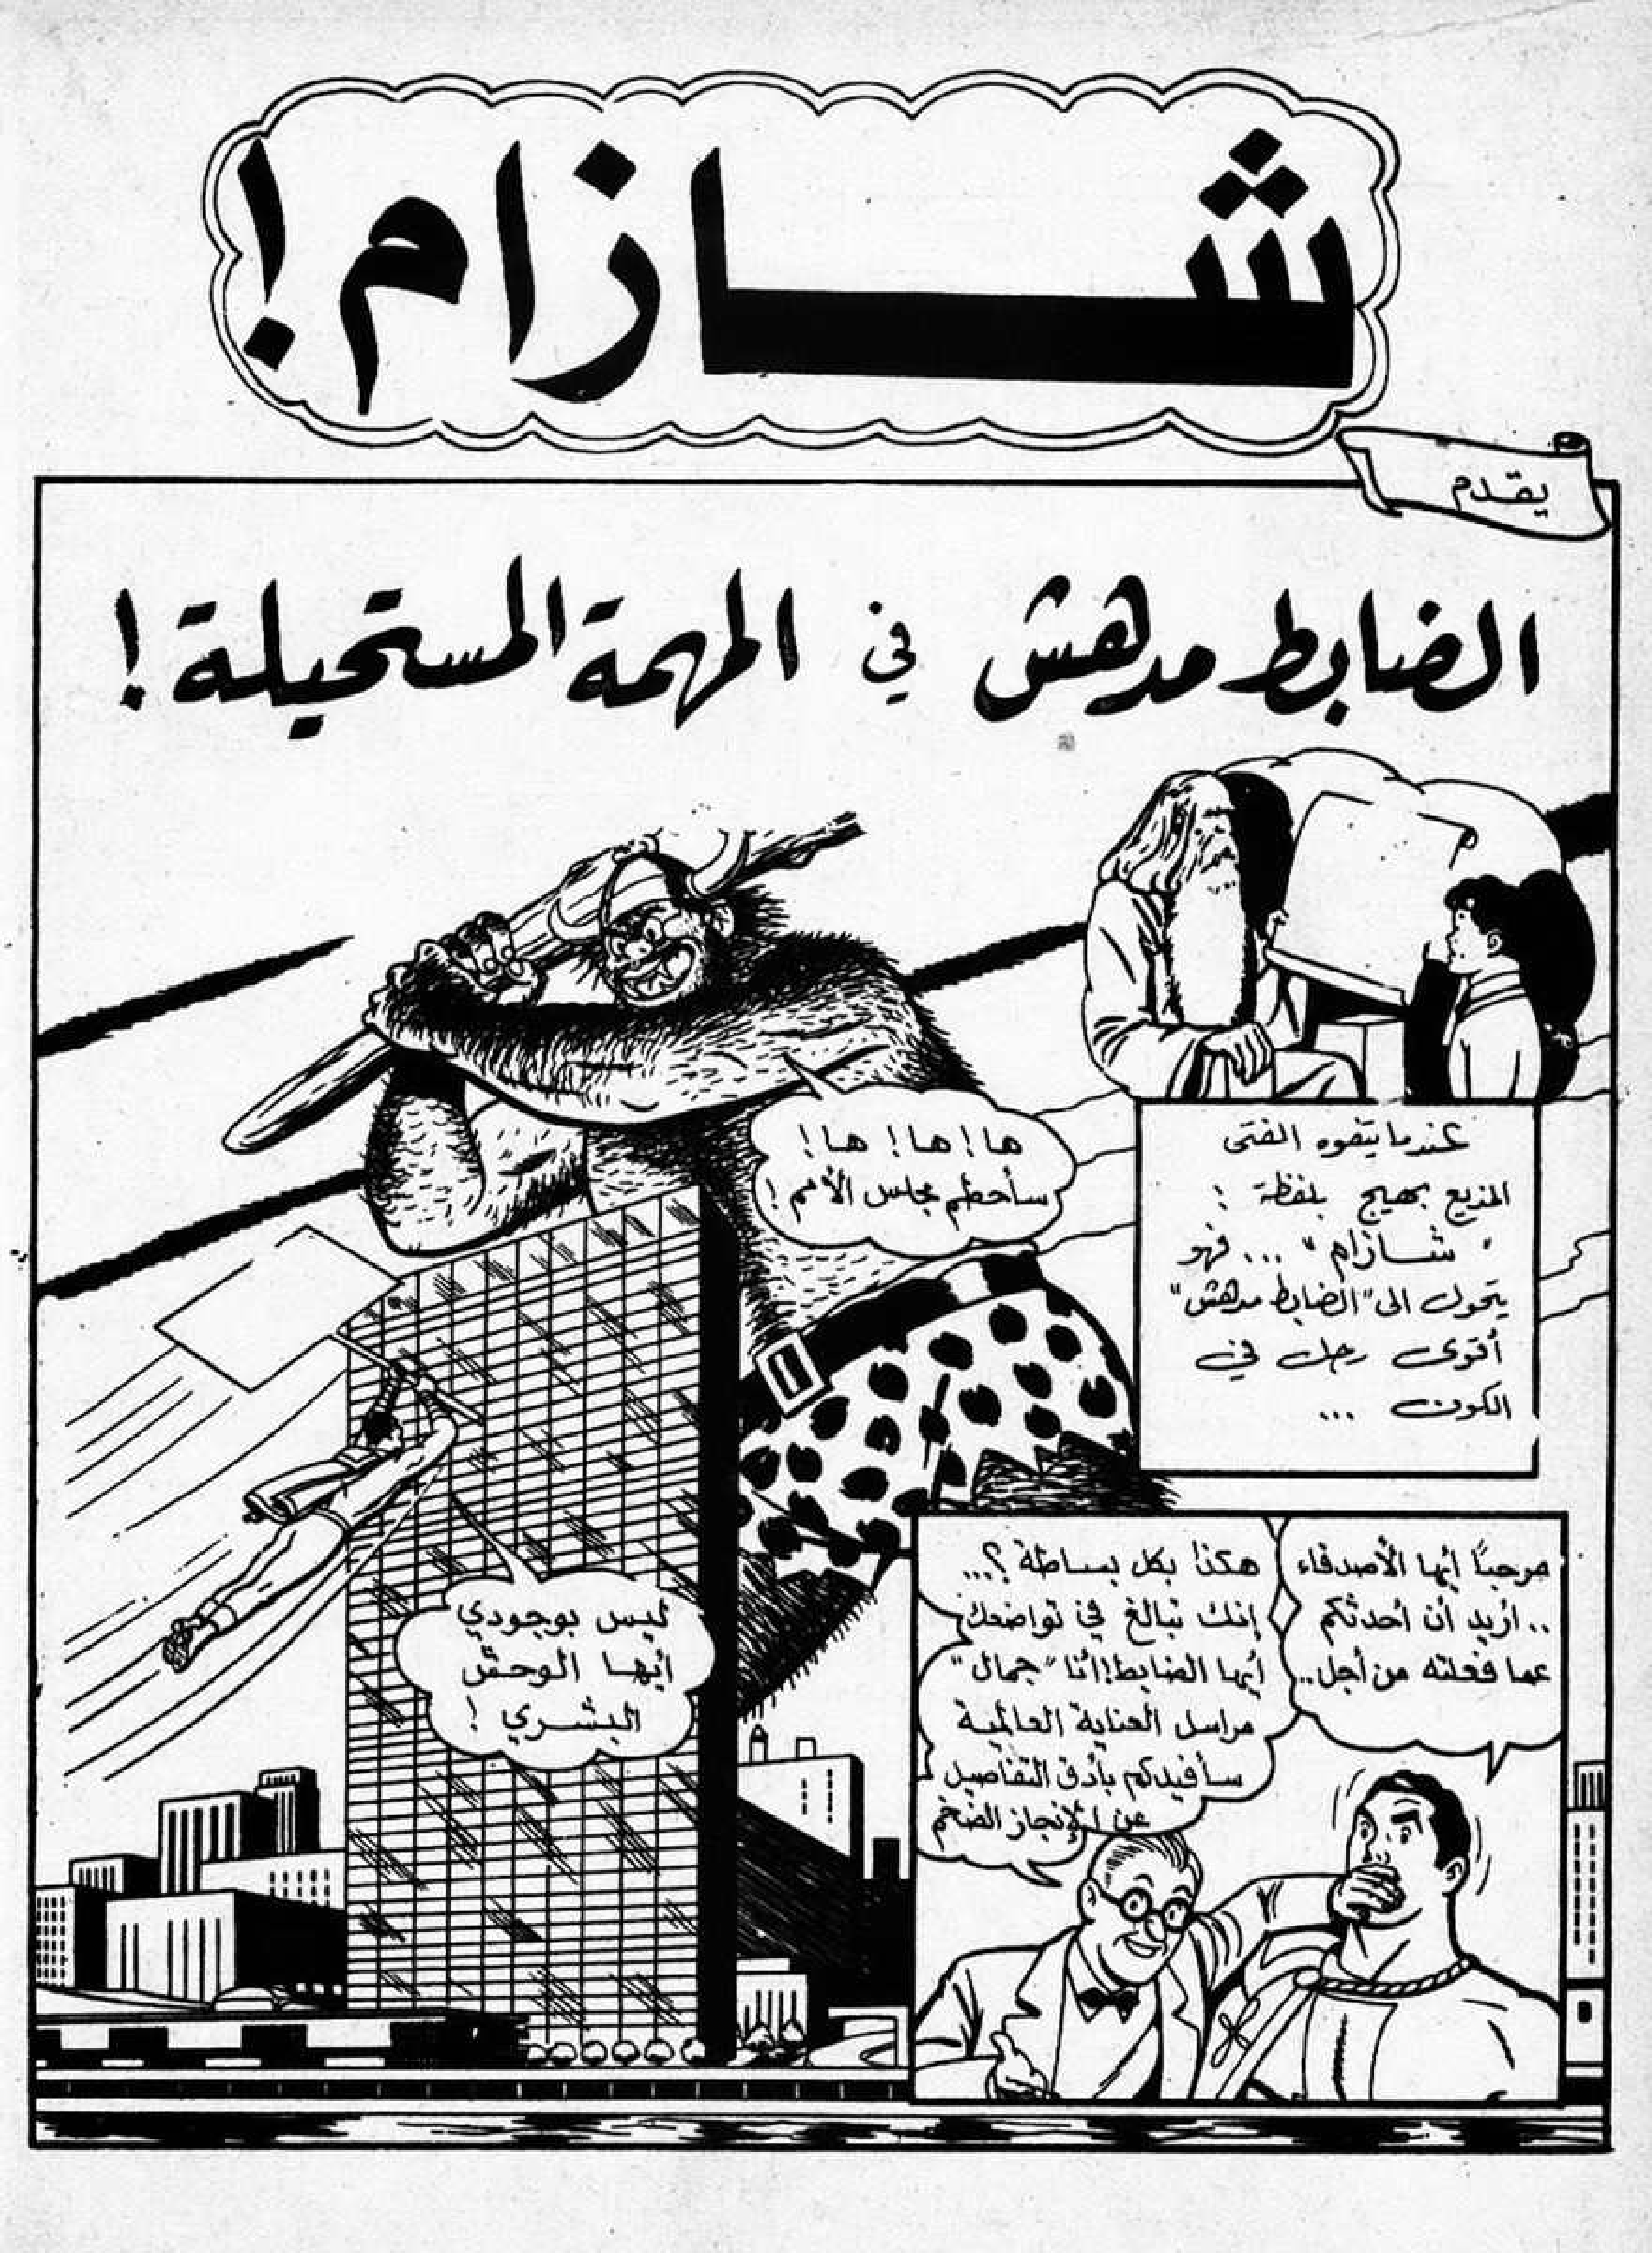 شازام!
يقدم
الضابط مدهش في المهمة المستحيلة!
عندما يتفوه الفتى
المذيع بهيج بلفظة :
"شازام" ... فهو
يتحول الى "الضابط مدهش"
أقوى رجل في
الكون ...
ها! ها! ها!
سأحطم مجلس الأمم!
ليس بوجودي
أيها الوحش
البشري!
مرحبًا أيها الأصدقاء
.. أريد أن أحدثكم
عما فعلته من أجل..
هكذا بكل بساطة؟...
إنك تبالغ في تواضعك
أيها الضابط! أنا "جمال"
مراسل العناية العالمية
سأفيدكم بأدق التفاصيل
عن الإنجاز الضخم